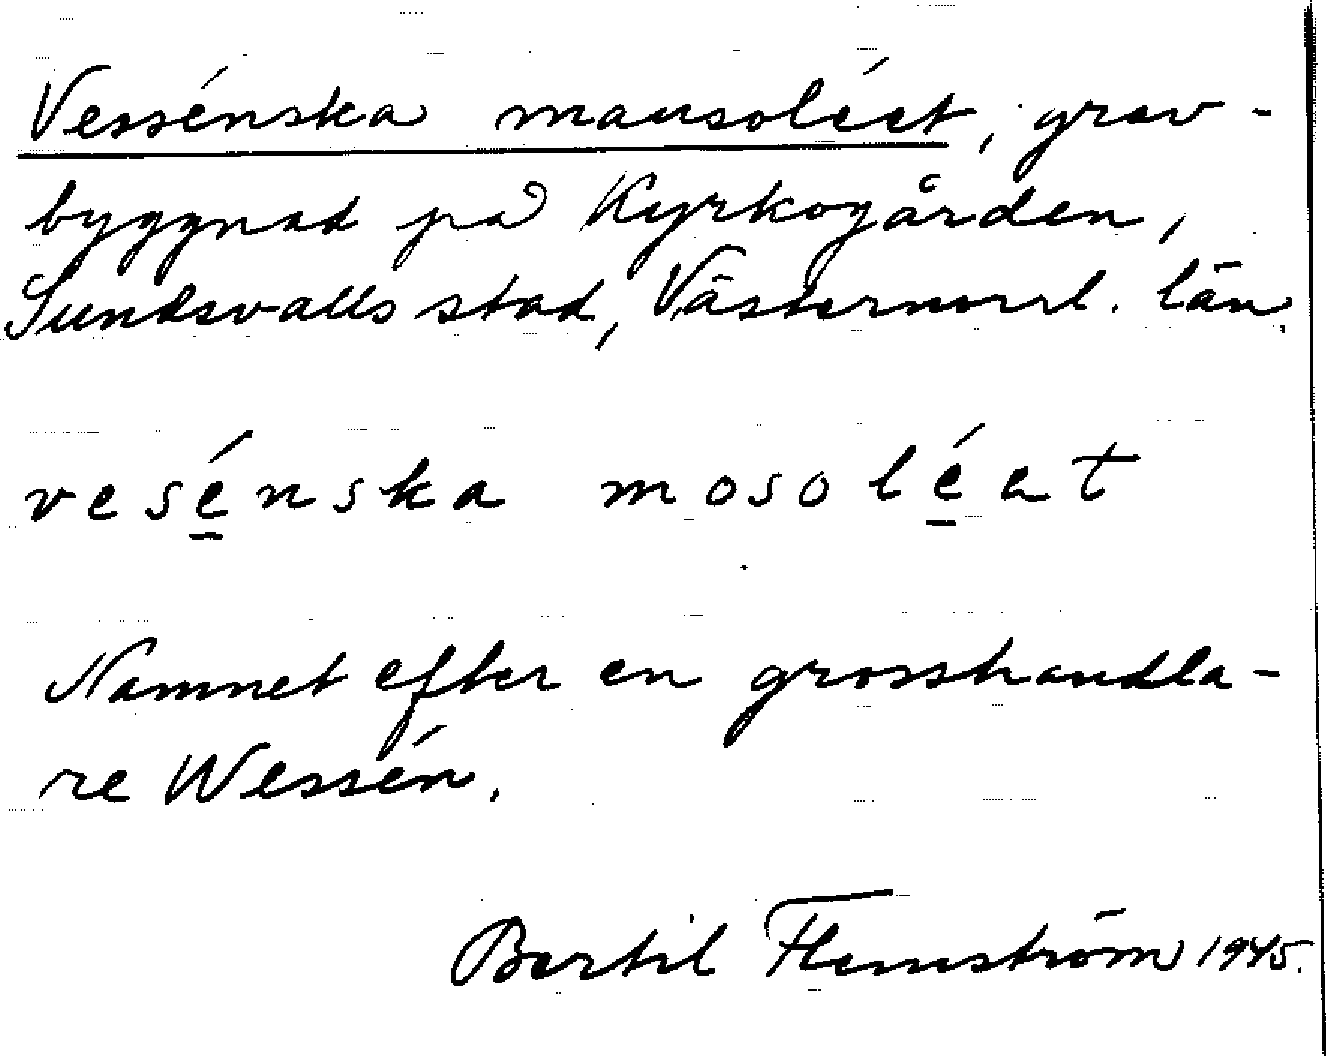 Vessénska mausoléet, grav-
byggnad på Kyrkogården,
Sundsvalls stad, Västernorrl. län.
vesénska mosoléat
Namnet efter en grosshandla-
re Wessén.
Bertil Flemström 1945.